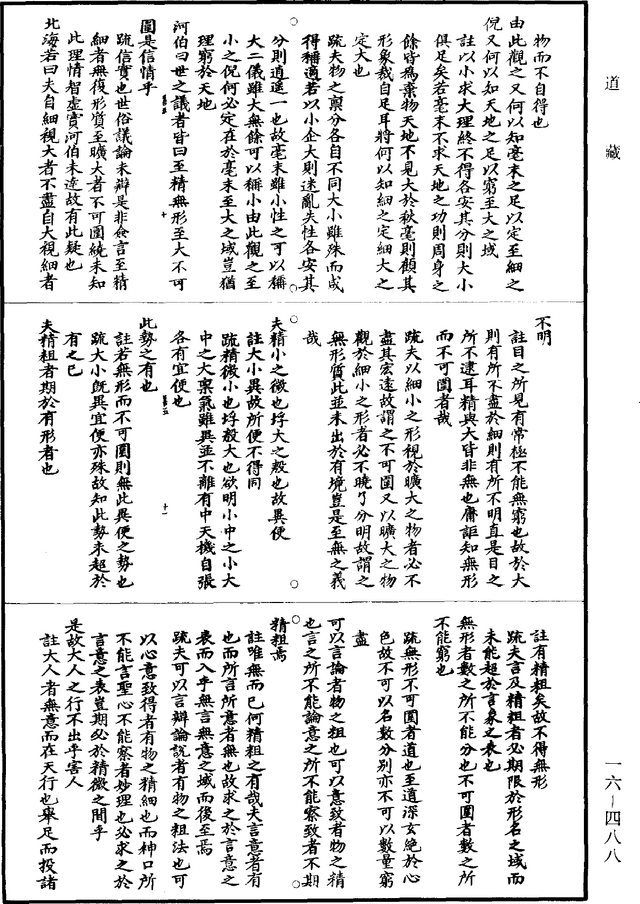 道藏
物而不自得也
由此觀之又何以知毫末之足以定至細之
倪又何以知天地之足以窮至大之域
註以小求大理終不得各安其分則大小
俱足矣若毫末不求天地之功則周身之
餘皆為棄物天地不見大於秋毫則顧其
形象裁自足耳將何以知細之定細大之
定大也
疏夫物之稟分各自不同大小雖殊而咸
得稱適若以小企大則迷亂失性各安其
分則逍遙一也故毫末雖小性之可以稱
大二儀雖大無餘可以稱小由此觀之至
小之倪何必定在於毫末至大之域豈猶
理窮於天地
河伯曰世之議者皆曰至精無形至大不可
圍是信情乎
疏信實也世俗議論未辯是非僉言至精
細者無復形質至曠大者不可圍繞未知
此理情智虛實河伯未達故有此疑也
北海若曰夫自細視大者不盡自大視細者
不明
註目之所見有常極不能無窮也故於大
則有所不盡於細則有所不明直是目之
所不逮耳精與大皆非無也庸詎知無形
而不可圍者哉
疏夫以細小之形視於曠大之物者必不
盡其宏遠故謂之不可圍又以曠大之物
觀於細小之形者必不曉了分明故謂之
無形質此並未出於有境豈是至無之義
哉
夫精小之微也垺大之殷也故異便
註大小異故所便不得同
疏精微小也垺殷大也欲明小中之小大
中之大稟氣雖異並不離有中天機自張
各有宜便也
此勢之有也
註若無形而不可圍則無此異便之勢也
疏大小既異宜便亦殊故知此勢未超於
有之已
夫精粗者期於有形者也
註有精粗矣故不得無形
疏夫言及精粗者必期限於形名之域而
未能超於言象之表也
無形者數之所不能分也不可圍者數之所
不能窮也
疏無形不可圍者道也至道深玄絶於心
色故不可以名數分別亦不可以數量窮
盡
可以言論者物之粗也可以意致者物之精
也言之所不能論意之所不能察致者不期
精粗焉
註唯無而已何精粗之有哉夫言意者有
也而所言所意者無也故求之於言意之
表而入乎無言無意之域而後至焉
疏夫可以言辯論說者有物之粗法也可
以心意致得者有物之精細也而神口所
不能言聖心不能察者妙理也必求之於
言意之表豈期必於精微之間乎
是故大人之行不出乎害人
註大人者無意而在天行也舉足而投諸
一六—四八八